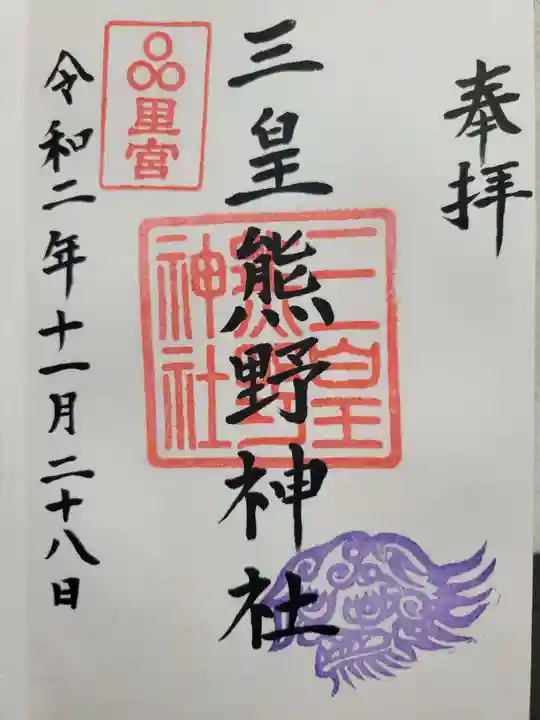 奉拝
三皇熊野神社
三皇熊野神社
里宮
令和二年十一月二十八日